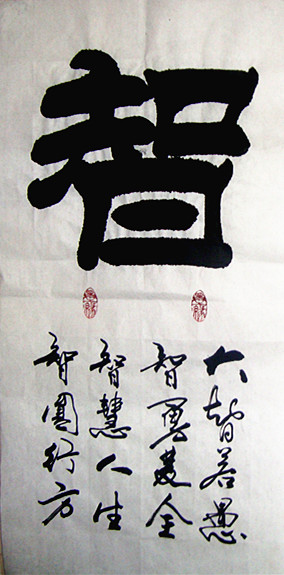 智
大智若愚
智勇双全
智慧人生
智圆行方